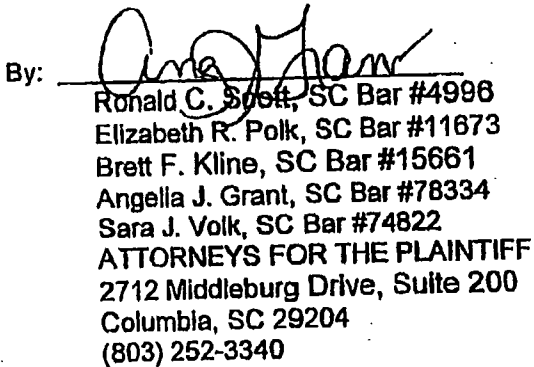 By:
Ronald C. Scott, SC Bar #4996
Elizabeth R. Polk, SC Bar #11673
Brett F. Kline, SC Bar #15661
Angelia J. Grant, SC Bar #78334
Sara J. Volk, SC Bar #74822
ATTORNEYS FOR THE PLAINTIFF
2712 Middleburg Drive, Suite 200
Columbia, SC 29204
(803) 252-3340